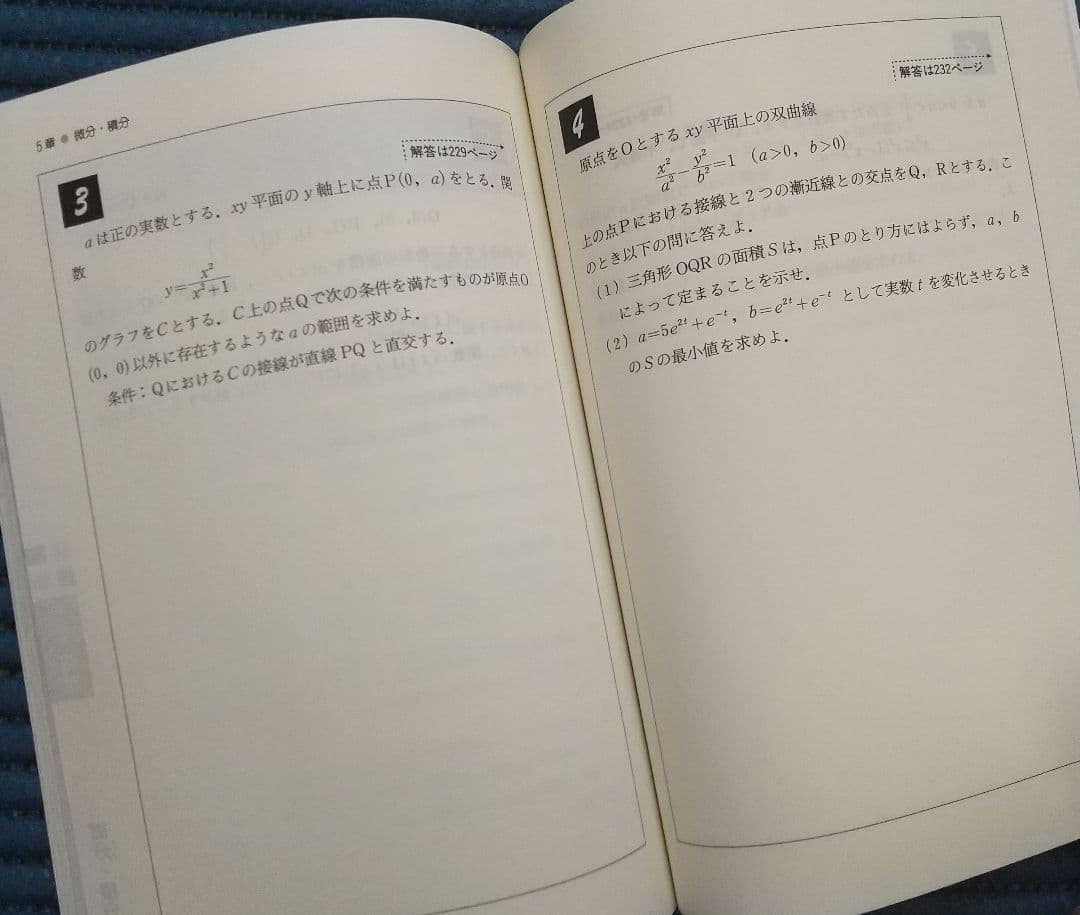 5章 ● 微分・積分
解答は229ページ
3
aは正の実数とする．xy平面のy軸上に点P(0, a)をとる．関
数
y=x²/(x²+1)
のグラフをCとする．C上の点Qで次の条件を満たすものが原点O
(0, 0)以外に存在するようなaの範囲を求めよ．
条件：QにおけるCの接線が直線PQと直交する．
解答は232ページ
4
原点をOとするxy平面上の双曲線
x²/a²−y²/b²=1 (a>0, b>0)
上の点Pにおける接線と2つの漸近線との交点をQ，Rとする．こ
のとき以下の問に答えよ．
(1) 三角形OQRの面積Sは，点Pのとり方にはよらず，a，b
によって定まることを示せ．
(2) a=5e²ᵗ+e⁻ᵗ，b=e²ᵗ+e⁻ᵗ として実数tを変化させるとき
のSの最小値を求めよ．